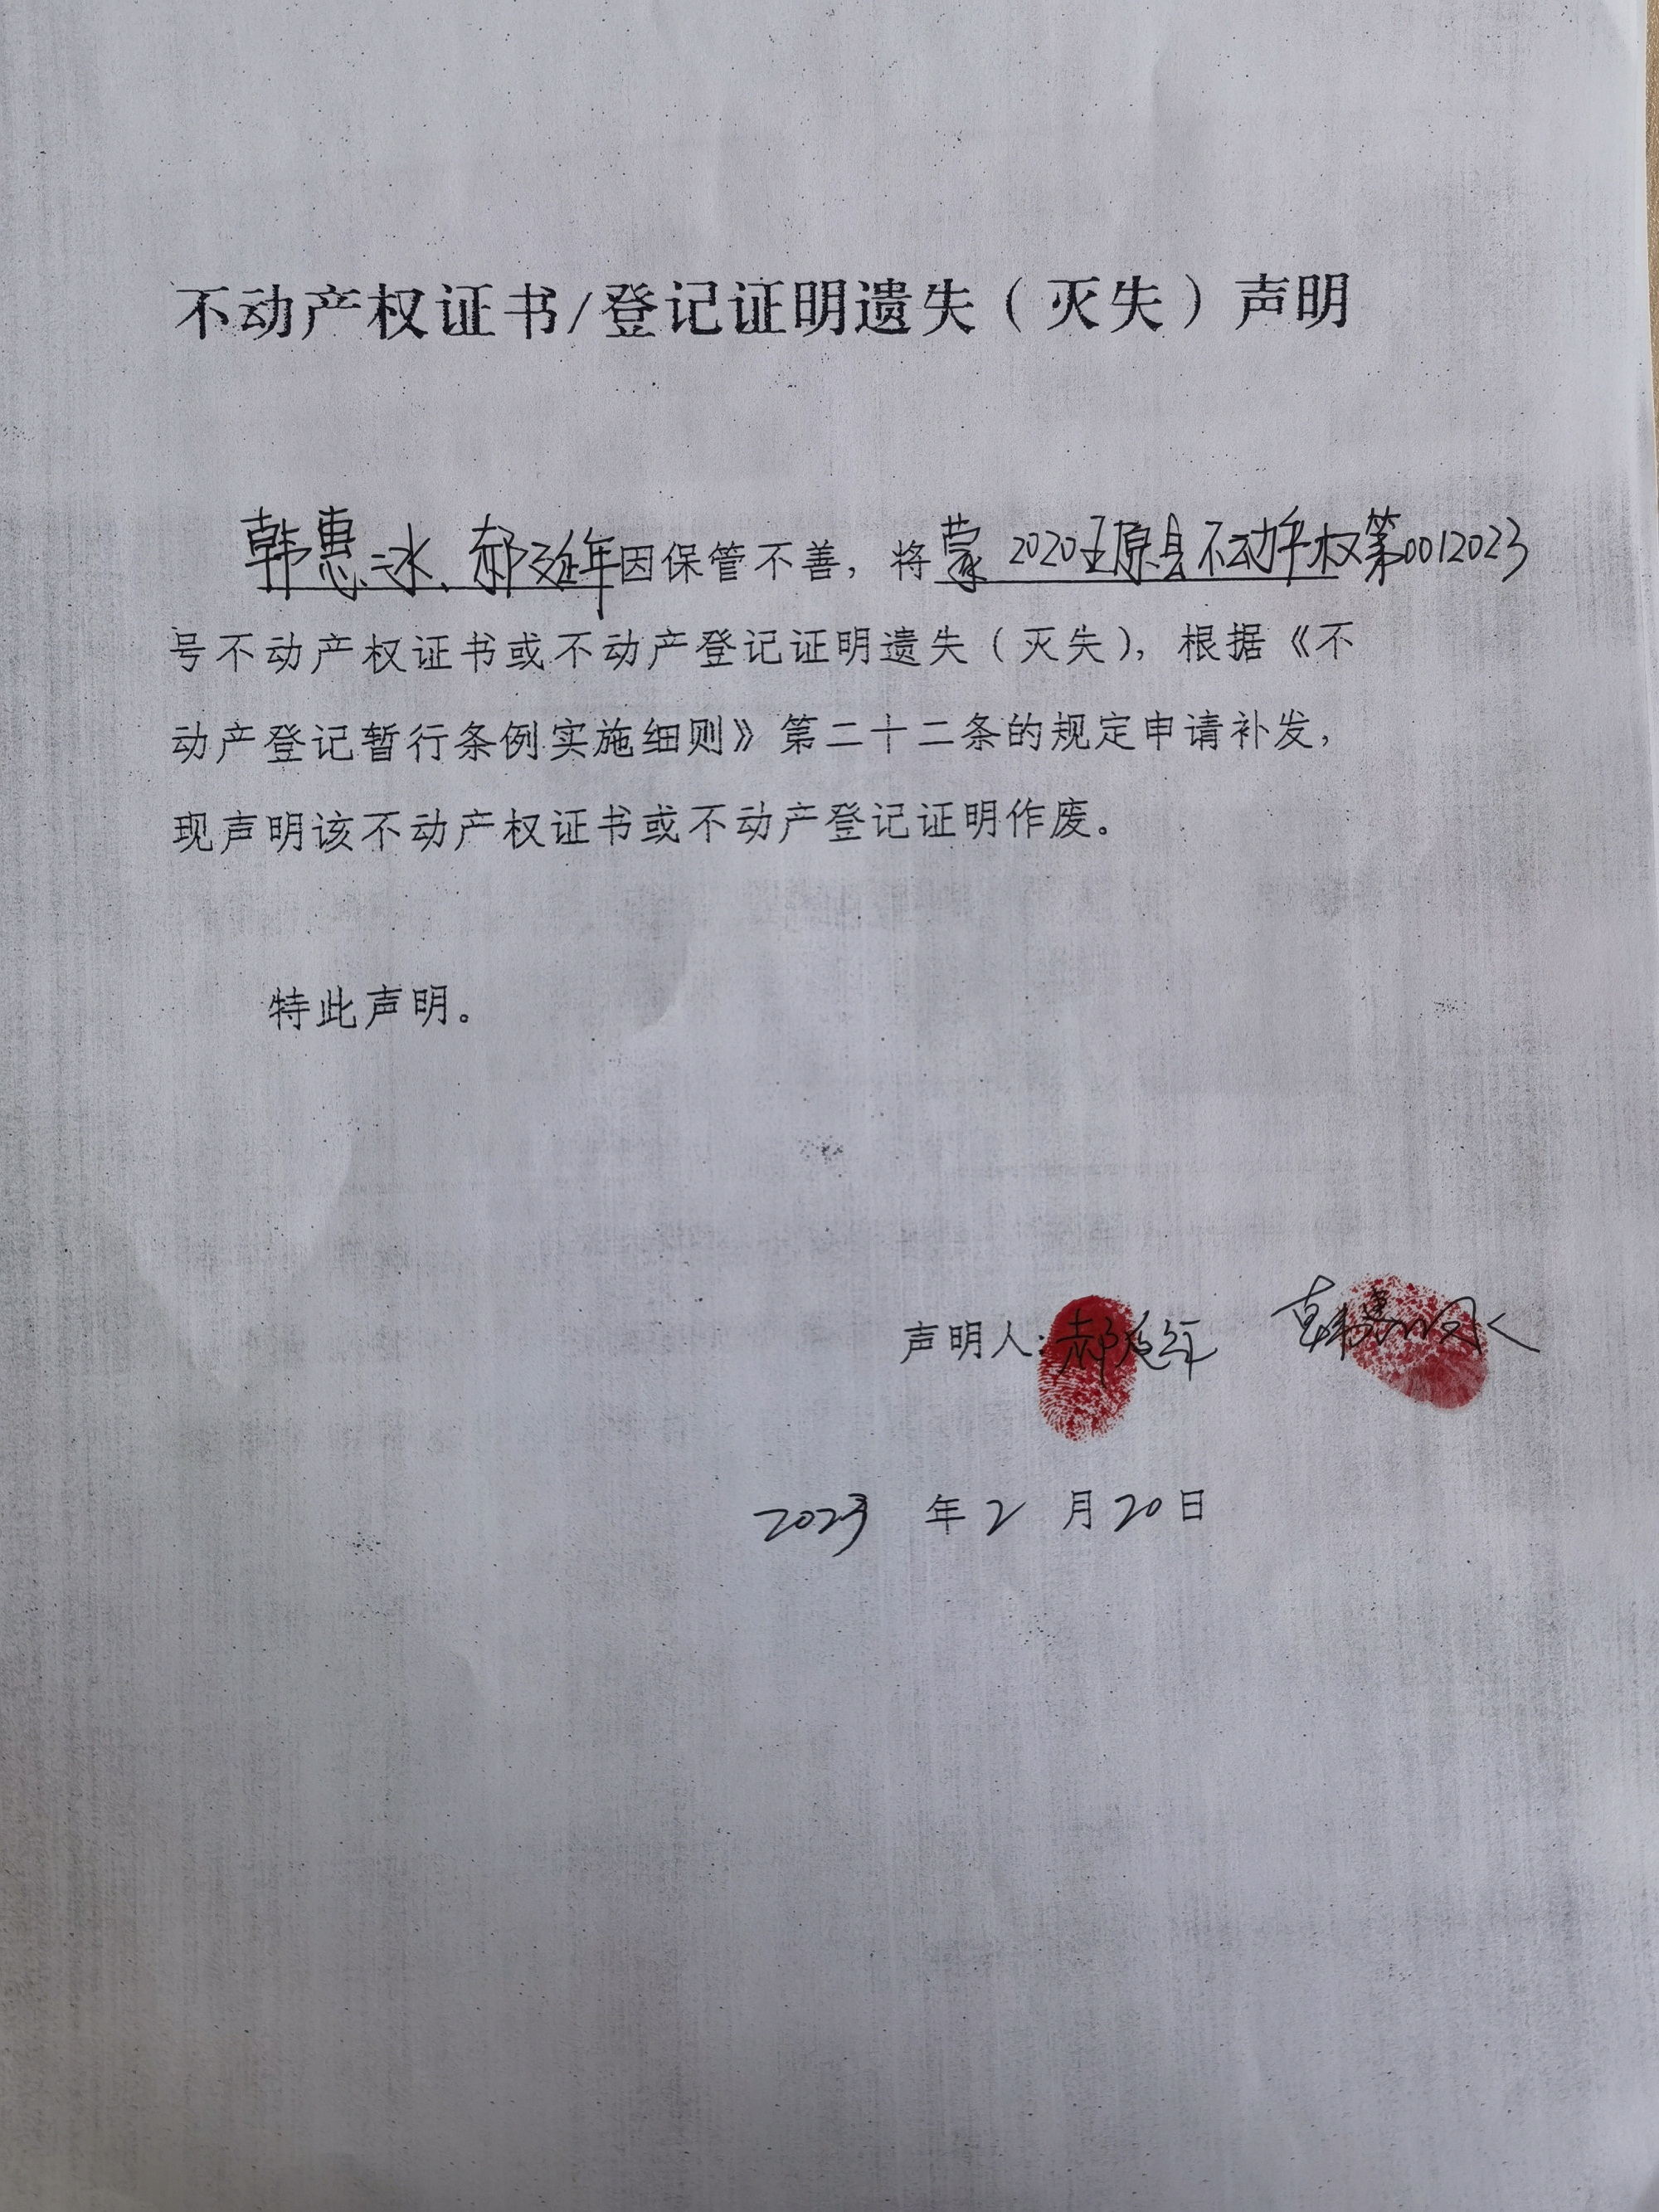 不动产权证书/登记证明遗失（灭失）声明
韩惠冰、郝延年因保管不善，将蒙2020五原县不动产权第0012023
号不动产权证书或不动产登记证明遗失（灭失），根据《不
动产登记暂行条例实施细则》第二十二条的规定申请补发，
现声明该不动产权证书或不动产登记证明作废。
特此声明。
声明人：郝延年 韩惠冰
2023 年 2 月 20 日